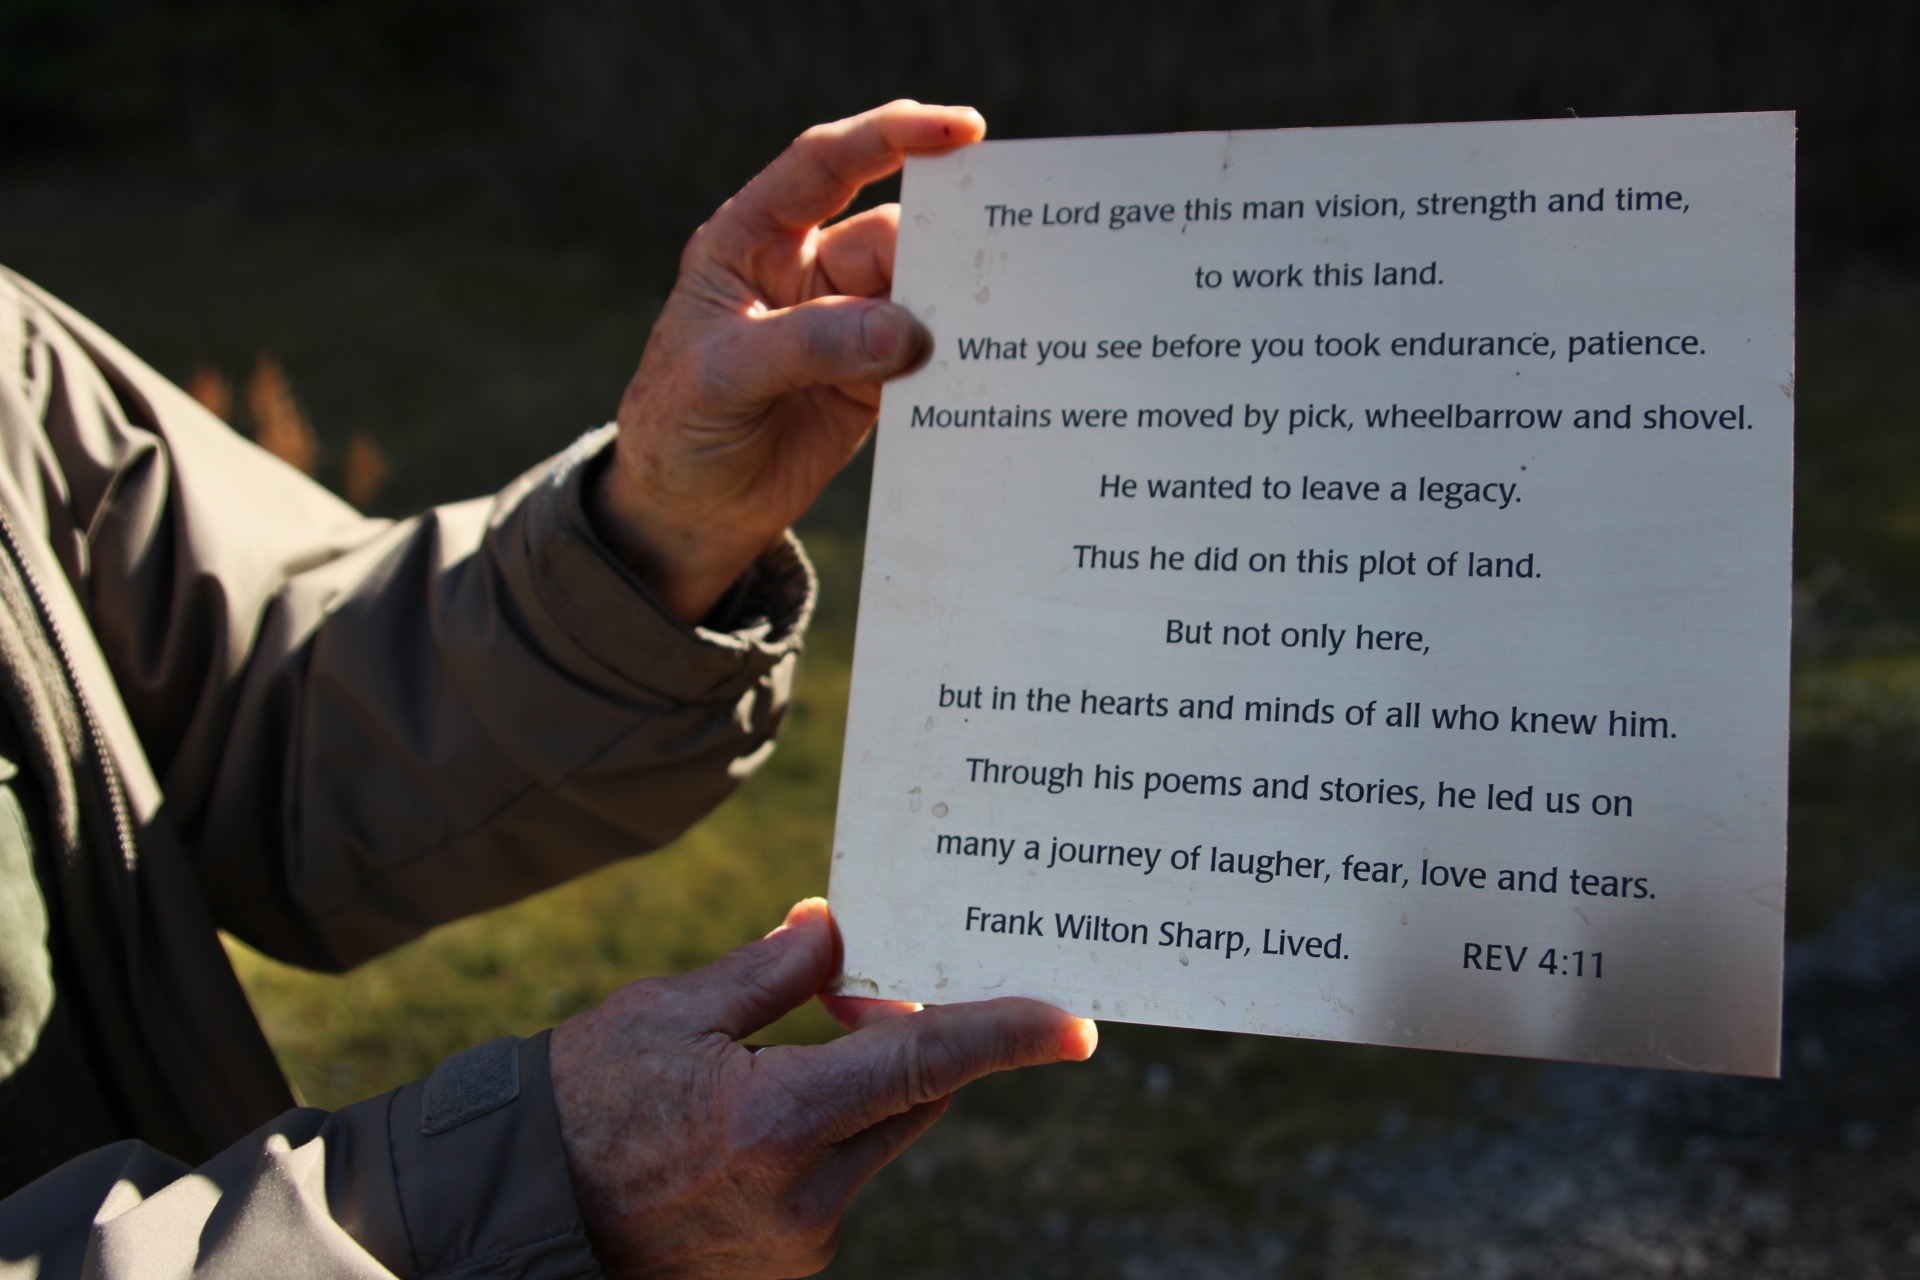 The Lord gave this man vision, strength and time,
to work this land.
What you see before you took endurance, patience.
Mountains were moved by pick, wheelbarrow and shovel.
He wanted to leave a legacy.
Thus he did on this plot of land.
But not only here,
but in the hearts and minds of all who knew him.
Through his poems and stories, he led us on
many a journey of laugher, fear, love and tears.
Frank Wilton Sharp, Lived. REV 4:11